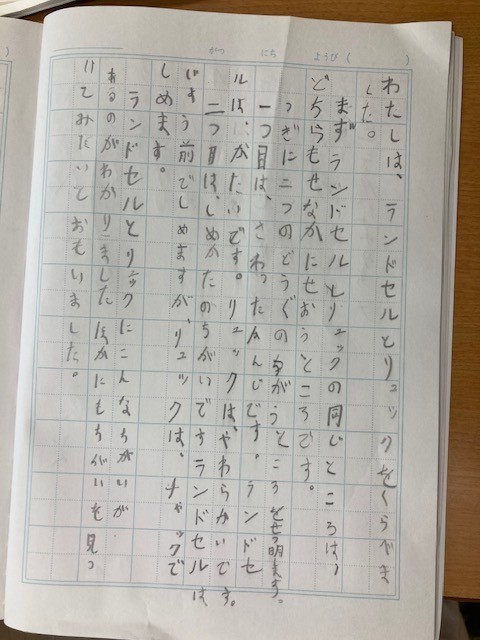 がつ にち ようび( )
わたしは、ランドセルとリュックをくらべま
した。
まずランドセルとリュックの同じところは、
どちらもせなかにせおうところです。
つぎに二つのどうぐのちがうところをせつ明します。
一つ目は、さわったかんじです。ランドセ
ルは、かたいです。リュックは、やわらかいです。
二つ目は、しめかたのちがいですランドセルは
じょう前でしめますが、リュックは、チャックで
しめます。
ランドセルとリュックにこんなちがいが
あるのがわかりましたほかにもちがいを見つ
けてみたいとおもいました。